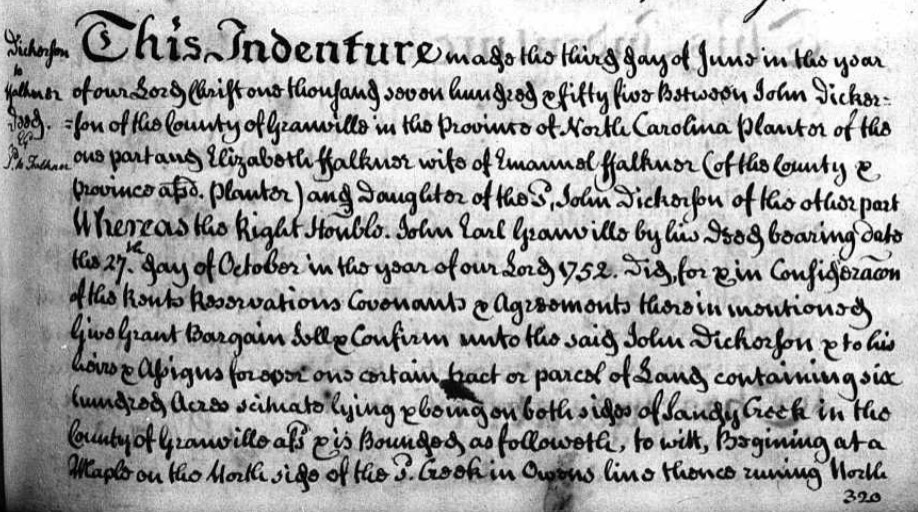 Dickerson
to
Falkner
Deed.
This Indenture made the third day of June in the year
of our Lord Christ one thousand seven hundred & fifty five Between John Dicker=
=son of the County of Granville in the Province of North Carolina Planter of the
one part and Elizabeth Falkner wife of Emanuel Falkner (of the County &
Province afsd. Planter) and Daughter of the Sd. John Dickerson of the other part
Whereas the Right Honble. John Earl Granville by his Deed bearing date
the 27.th day of October in the year of our Lord 1752. Did, for & in Consideracon
of the Rents Reservations Covenants & Agreements therein mentioned
Give Grant Bargain Sell & Confirm unto the said John Dickerson & to his
heirs & Assigns forever one certain tract or parcel of Land containing six
hundred Acres scituate lying & being on both sides of Sandy Creek in the
County of Granville afs & is Bounded as followeth, to witt, Begining at a
Maple on the North side of the S. Creek in Owens line thence runing North
320